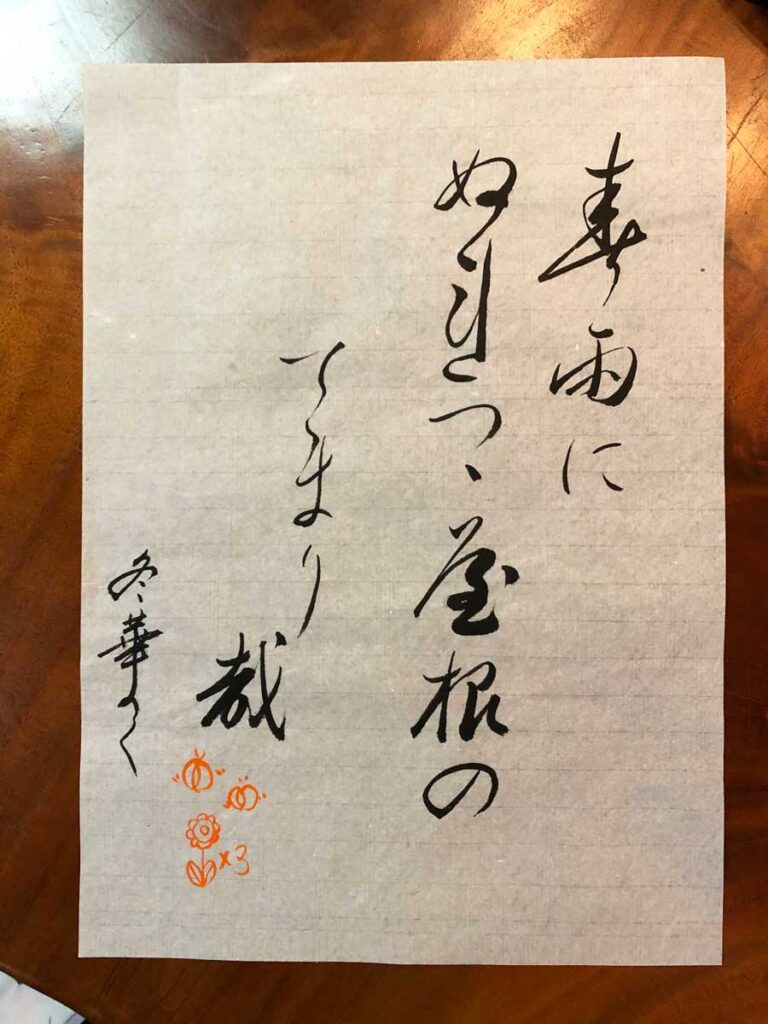 春雨に
ぬれつゝ屋根の
てまり
哉
冬華かく
x3